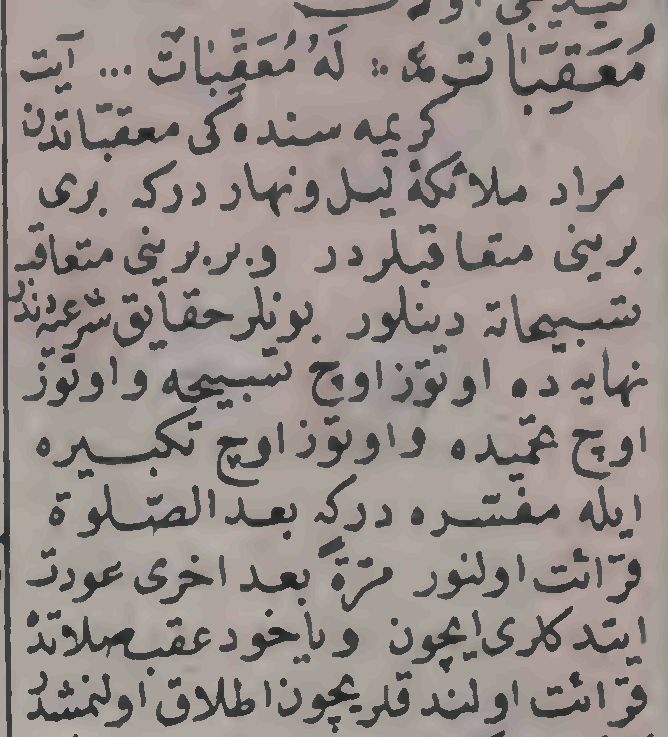 مُعَقِّبَاتٌ لَهُ مُعَقِّبَاتٌ ... آیت
کریمه سنده کی معقباتدن
مراد ملائکهٔ لیل ونهار درکه بری
برینی متعاقبلردر وبربرینی متعاقب
تسبیحاته دینلور بونلر حقایق شرعیه دندر
نهایه ده اوتوز اوچ تسبیحه واوتوز
اوچ تحمیده واوتوز اوچ تکبیره
ایله مفسره درکه بعد الصلوة
قرائت اولنور مرّةً بعد اخری عودت
ایتدکلری ایچون ویاخود عقب صلاتده
قرائت اولندقلریچون اطلاق اولنمشدر